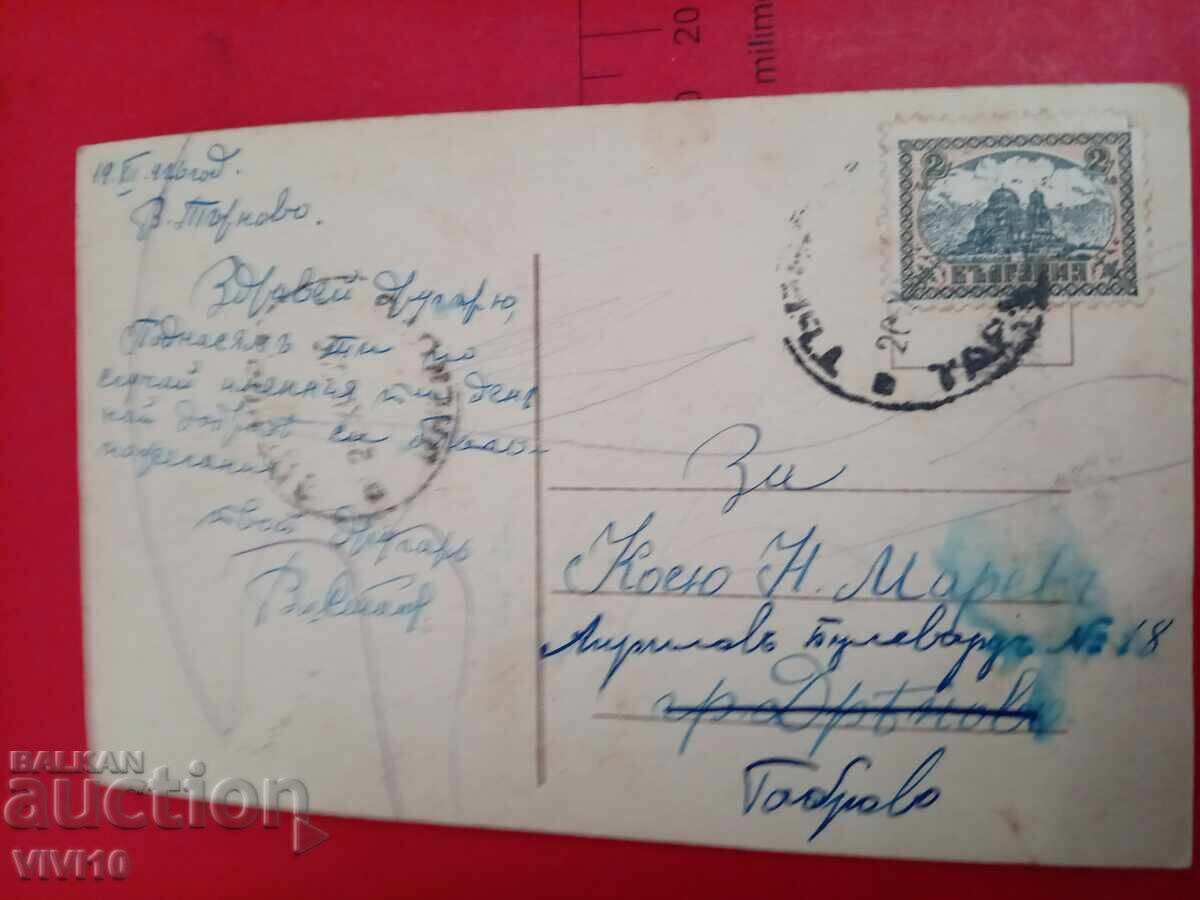 20
milim
19.XII.926 год.
В. Търново.
Здравей Другарю,
Поднасямъ ти по
случай имянния ти день
най добрите си
пожелания
твой Другарь
2 2
БЪЛГАРИЯ
За
Косю Н. Маревъ
Априловъ булевардъ № 18
гр. Дрѣново
Габрово
BALKAN
auction
VIVI10